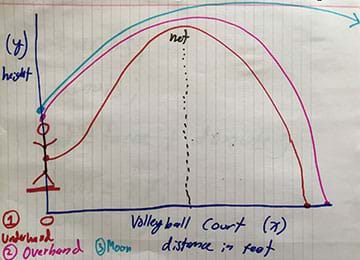 (y)
height
net
Volleyball Court (x)
distance in feet
① Underhand
② Overhand
③ Moon
0